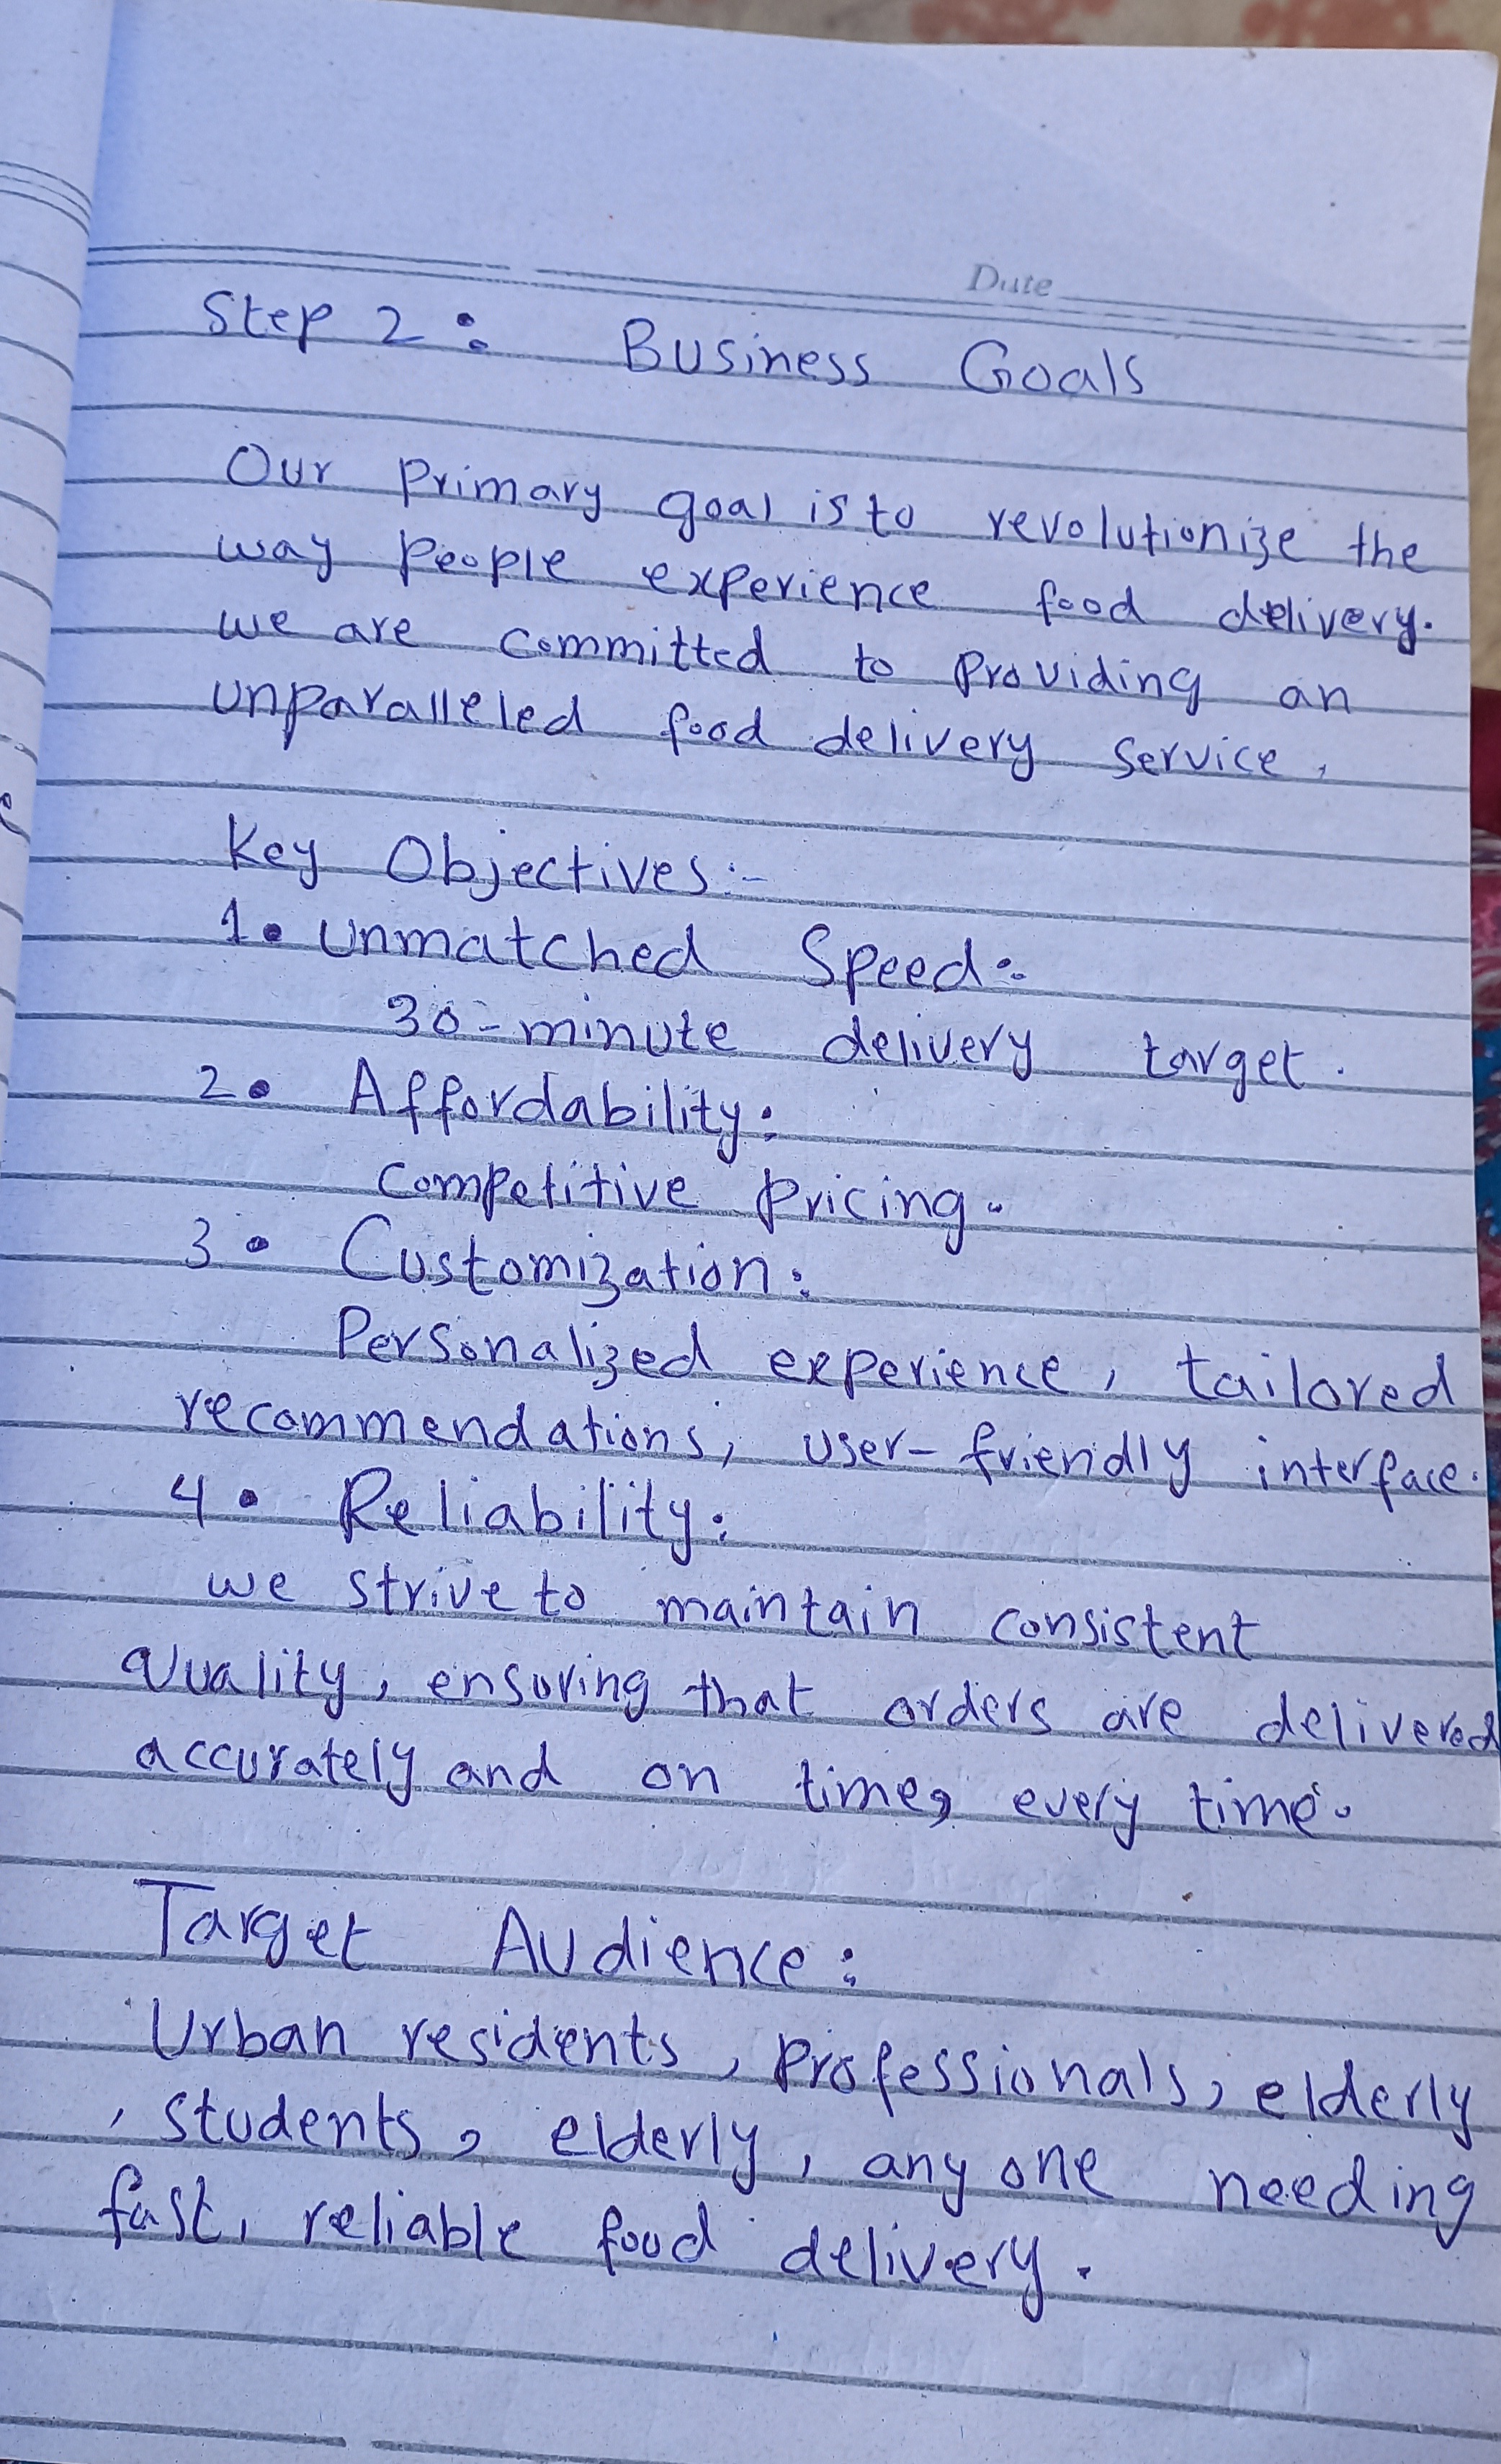 Date
Step 2: Business Goals
Our Primary goal is to revolutionize the
way People experience food delivery.
we are committed to Providing an
unparalleled food delivery Service.
Key Objectives:-
1. Unmatched Speed:
30-minute delivery target.
2. Affordability:
Competitive Pricing.
3. Customization:
Personalized experience, tailored
recommendations, user-friendly interface.
4. Reliability:
we strive to maintain consistent
Quality, ensuring that orders are delivered
accurately and on time, every time.
Target Audience:
Urban residents, Professionals, elderly
, students, elderly, any one needing
fast, reliable food delivery.